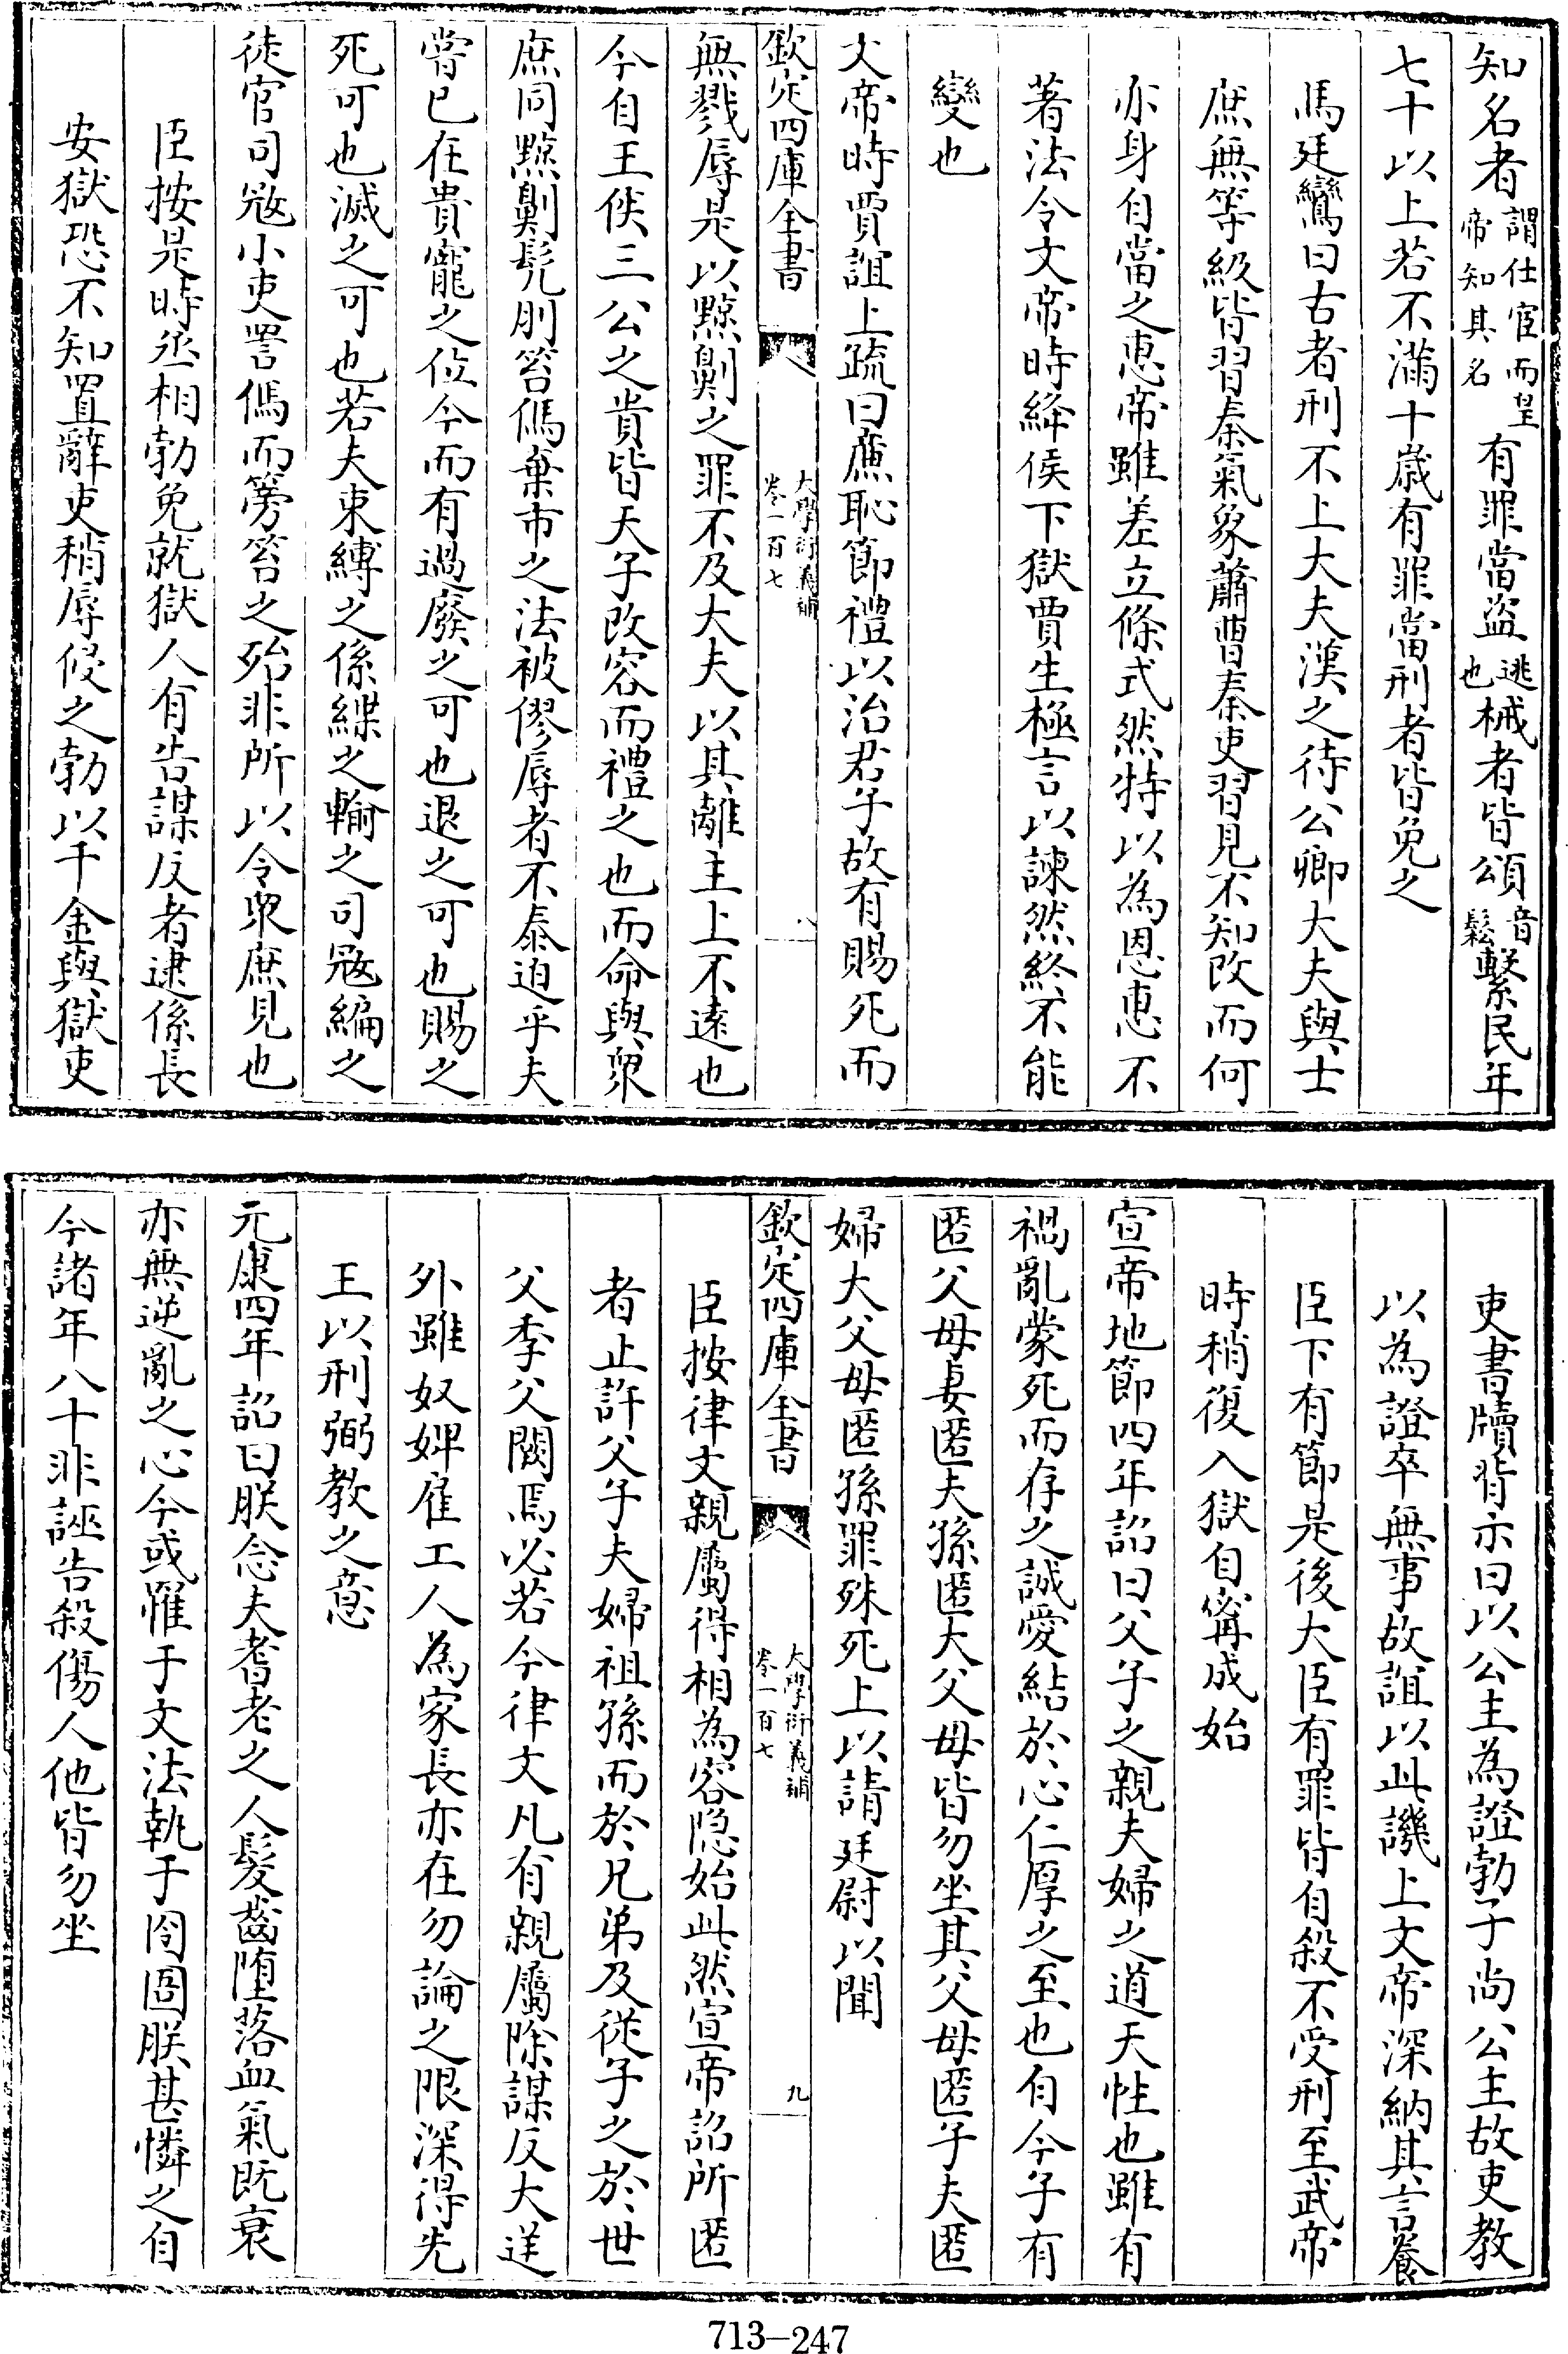 知名者謂仕宦而皇帝知其名有罪當盜逃也械者皆頌音鬆繫民年
七十以上若不滿十歲有罪當刑者皆免之
馬廷鸞曰古者刑不上大夫漢之待公卿大夫與士
庶無等級皆習秦氣象蕭曹秦吏習見不知改而何
亦身自當之惠帝雖差立條式然特以為恩惠不
著法令文帝時絳侯下獄賈生極言以諫然終不能
變也
文帝時賈誼上疏曰廉恥節禮以治君子故有賜死而
欽定四庫全書
大學衍義補
卷一百七
八
無戮辱是以黥劓之罪不及大夫以其離主上不遠也
今自王侯三公之貴皆天子改容而禮之也而命與衆
庶同黥劓髠刖笞傌棄市之法被僇辱者不泰迫乎夫
嘗已在貴寵之位今而有過廢之可也退之可也賜之
死可也滅之可也若夫束縛之係緤之輸之司冦編之
徒官司冦小吏詈傌而篣笞之殆非所以令衆庶見也
臣按是時丞相勃免就獄人有告謀反者逮係長
安獄恐不知置辭吏稍辱侵之勃以千金與獄吏
吏書牘背示曰以公主為證勃子尚公主故吏教
以為證卒無事故誼以此譏上文帝深納其言養
臣下有節是後大臣有罪皆自殺不受刑至武帝
時稍復入獄自寗成始
宣帝地節四年詔曰父子之親夫婦之道天性也雖有
禍亂蒙死而存之誠愛結於心仁厚之至也自今子有
匿父母妻匿夫孫匿大父母皆勿坐其父母匿子夫匿
婦大父母匿孫罪殊死上以請廷尉以聞
欽定四庫全書
大學衍義補
卷一百七
九
臣按律文親屬得相為容隱始此然宣帝詔所匿
者止許父子夫婦祖孫而於兄弟及從子之於世
父季父闕焉必若今律文凡有親屬除謀反大逆
外雖奴婢雇工人為家長亦在勿論之限深得先
王以刑弼教之意
元康四年詔曰朕念夫耆老之人髮齒墮落血氣既衰
亦無逆亂之心今或罹于文法執于囹圄朕甚憐之自
今諸年八十非誣告殺傷人他皆勿坐
713-247